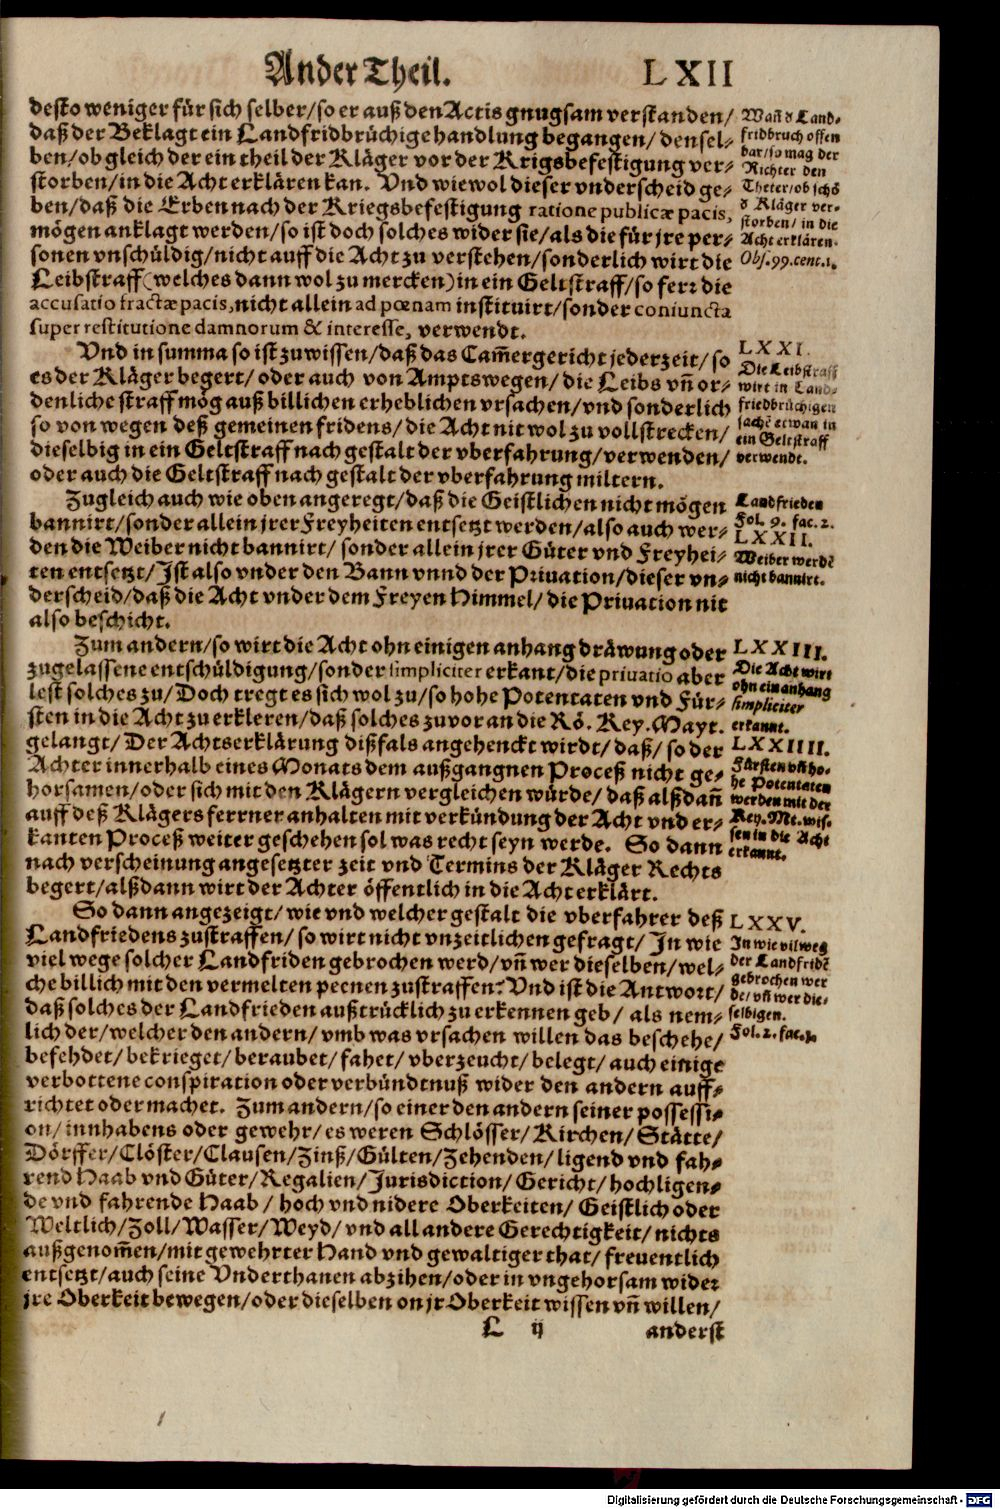 Ander Theil. LXII
desto weniger für sich selber/so er auß den Actis gnugsam verstanden/
daß der Beklagt ein Landfridbrüchige handlung begangen/ densel-
ben/ob gleich der ein theil der Kläger vor der Krigsbefestigung ver-
storben/in die Acht erklären kan. Vnd wiewol dieser vnderscheid ge-
ben/daß die Erben nach der Kriegsbefestigung ratione publicæ pacis,
mögen anklagt werden/so ist doch solches wider sie/als die für jre per-
sonen vnschüldig/nicht auff die Acht zu verstehen/sonderlich wirt die
Leibstraff(welches dann wol zu mercken)in ein Geltstraff/so ferr die
accusatio fractæ pacis, nicht allein ad pœnam instituirt/sonder coniuncta
super restitutione damnorum & interesse, verwendt.
Wañ d Land-
fridbruch offen
bar/so mag der
Richter den
Theter/ob schõ
d Kläger ver-
storben/ in die
Acht erklären.
Obs.99.cent.1.
Vnd in summa so ist zuwissen/daß das Cam̃ergericht jederzeit/so
es der Kläger begert/oder auch von Amptswegen/die Leibs vñ or-
denliche straff mög auß billichen erheblichen vrsachen/vnd sonderlich
so von wegen deß gemeinen fridens/die Acht nit wol zu vollstrecken/
dieselbig in ein Geltstraff nach gestalt der vberfahrung/verwenden/
oder auch die Geltstraff nach gestalt der vberfahrung miltern.
LXXI.
Die Leibstraff
wirt in Land-
friedbrüchigen
sachẽ etwan in
ein Geltstraff
verwendt.
Zugleich auch wie oben angeregt/daß die Geistlichen nicht mögen
bannirt/sonder allein jrer Freyheiten entsetzt werden/also auch wer-
den die Weiber nicht bannirt/ sonder allein jrer Güter vnd Freyhei-
ten entsetzt/Ist also vnder den Bann vnnd der Priuation/dieser vn-
derscheid/daß die Acht vnder dem Freyen Himmel/ die Priuation nit
also beschicht.
Landfrieden
Fol. 9. fac. 2.
LXXII.
Weiber werdẽ
nicht bannirt.
Zum andern/so wirt die Acht ohn einigen anhang dräwung oder
zugelassene entschüldigung/sonder simpliciter erkant/die priuatio aber
lest solches zu/Doch tregt es sich wol zu/so hohe Potentaten vnd Für-
sten in die Acht zu erkleren/daß solches zuvor an die Rö. Key. Mayt.
gelangt/Der Achtserklärung dißfals angehenckt wirdt/daß/so der
Achter innerhalb eines Monats dem außgangnen Proceß nicht ge-
horsamen/oder sich mit den Klägern vergleichen würde/ daß alßdañ
auff deß Klägers ferrner anhalten mit verkündung der Acht vnd er-
kanten Proceß weiter geschehen sol was recht seyn werde. So dann
nach verscheinung angesetzter zeit vnd Termins der Kläger Rechts
begert/alßdann wirt der Achter öffentlich in die Acht erklärt.
LXXIII.
Die Acht wirt
ohn ein anhang
simpliciter
erkannt.
LXXIIII.
Fürsten vñ ho-
he Potentaten
werden mit der
Key. Mt. wis-
sen in die Acht
erkannt.
So dann angezeigt/wie vnd welcher gestalt die vberfahrer deß
Landfriedens zustraffen/so wirt nicht vnzeitlichen gefragt/ In wie
viel wege solcher Landfriden gebrochen werd/vñ wer dieselben/wel-
che billich mit den vermelten peenen zustraffen? Vnd ist die Antwort/
daß solches der Landfrieden außtrücklich zu erkennen geb/ als nem-
lich der/welcher den andern/ vmb was vrsachen willen das beschehe/
befehdet/bekrieget/beraubet/fahet/vberzeucht/belegt/auch einige
verbottene conspiration oder verbündtnuß wider den andern auff-
richtet oder machet. Zum andern/so einer den andern seiner possessi-
on/innhabens oder gewehr/es weren Schlösser/Kirchen/Stätte/
Dörffer/Clöster/Clausen/Zinß/Gülten/Zehenden/ligend vnd fah-
rend Haab vnd Güter/Regalien/Jurisdiction/Gericht/hochligen-
de vnd fahrende Haab/ hoch vnd nidere Oberkeiten/ Geistlich oder
Weltlich/Zoll/Wasser/Weyd/vnd all andere Gerechtigkeit/nichts
außgenom̃en/mit gewehrter Hand vnd gewaltiger that/freuentlich
entsetzt/auch seine Vnderthanen abzihen/oder in vngehorsam wider
jre Oberkeit bewegen/oder dieselben on jr Oberkeit wissen vñ willen/
LXXV.
In wie vil weg
der Landfridẽ
gebrochen wer
de/vñ wer die-
selbigen.
Fol.2.fac.
L ij anderst
Digitalisierung gefördert durch die Deutsche Forschungsgemeinschaft - DFG